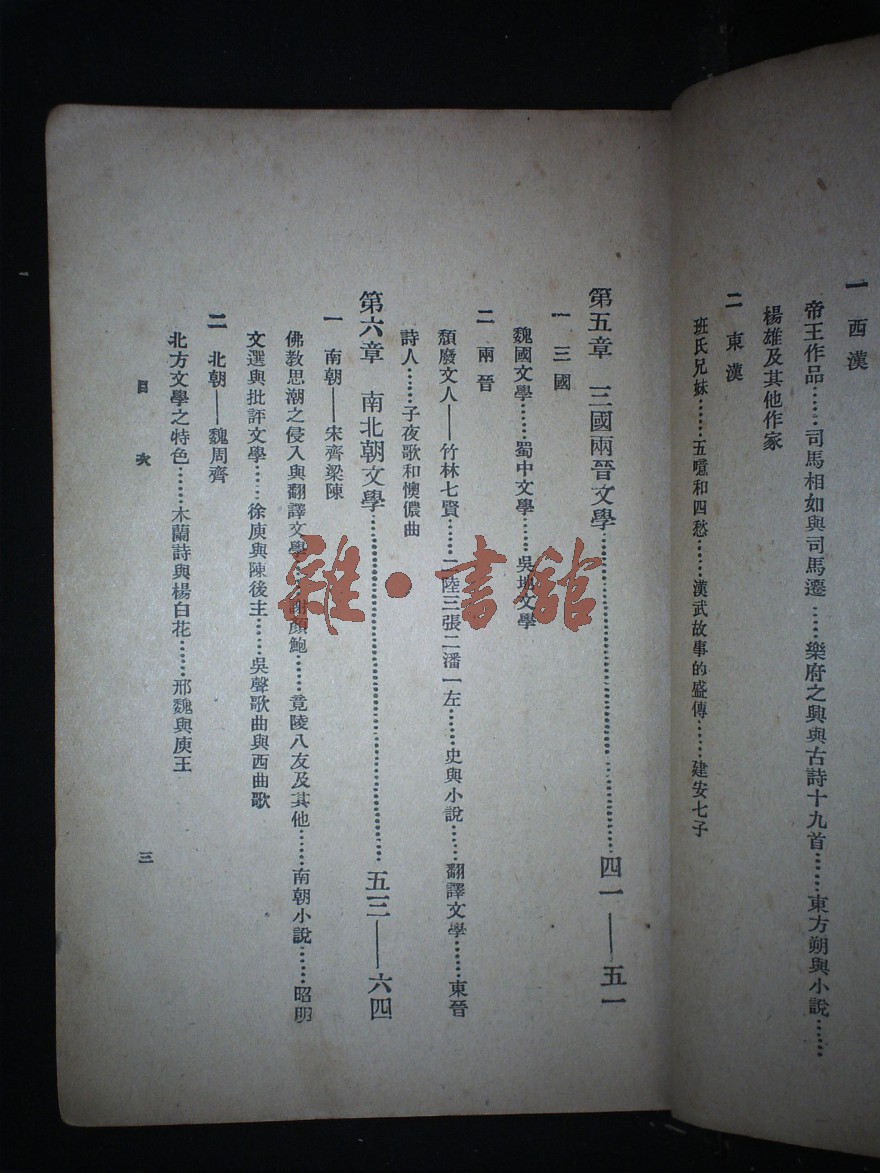 一 西漢
帝王作品……司馬相如與司馬遷……樂府之興與古詩十九首……東方朔與小說……
楊雄及其他作家
二 東漢
班氏兄妹……五噫和四愁……漢武故事的盛傳……建安七子
第五章 三國兩晉文學……四一——五一
一 三國
魏國文學……蜀中文學……吳地文學
二 兩晉
頹廢文人——竹林七賢……二陸三張二潘一左……史與小說……翻譯文學……東晉
詩人……子夜歌和懊儂曲
第六章 南北朝文學……五三——六四
一 南朝——宋齊梁陳
佛教思潮之侵入與翻譯文學……謝顏鮑……竟陵八友及其他……南朝小說……昭明
文選與批評文學……徐庾與陳後主……吳聲歌曲與西曲歌
二 北朝——魏周齊
北方文學之特色……木蘭詩與楊白花……邢魏與庾王
目次
三
雜·書館